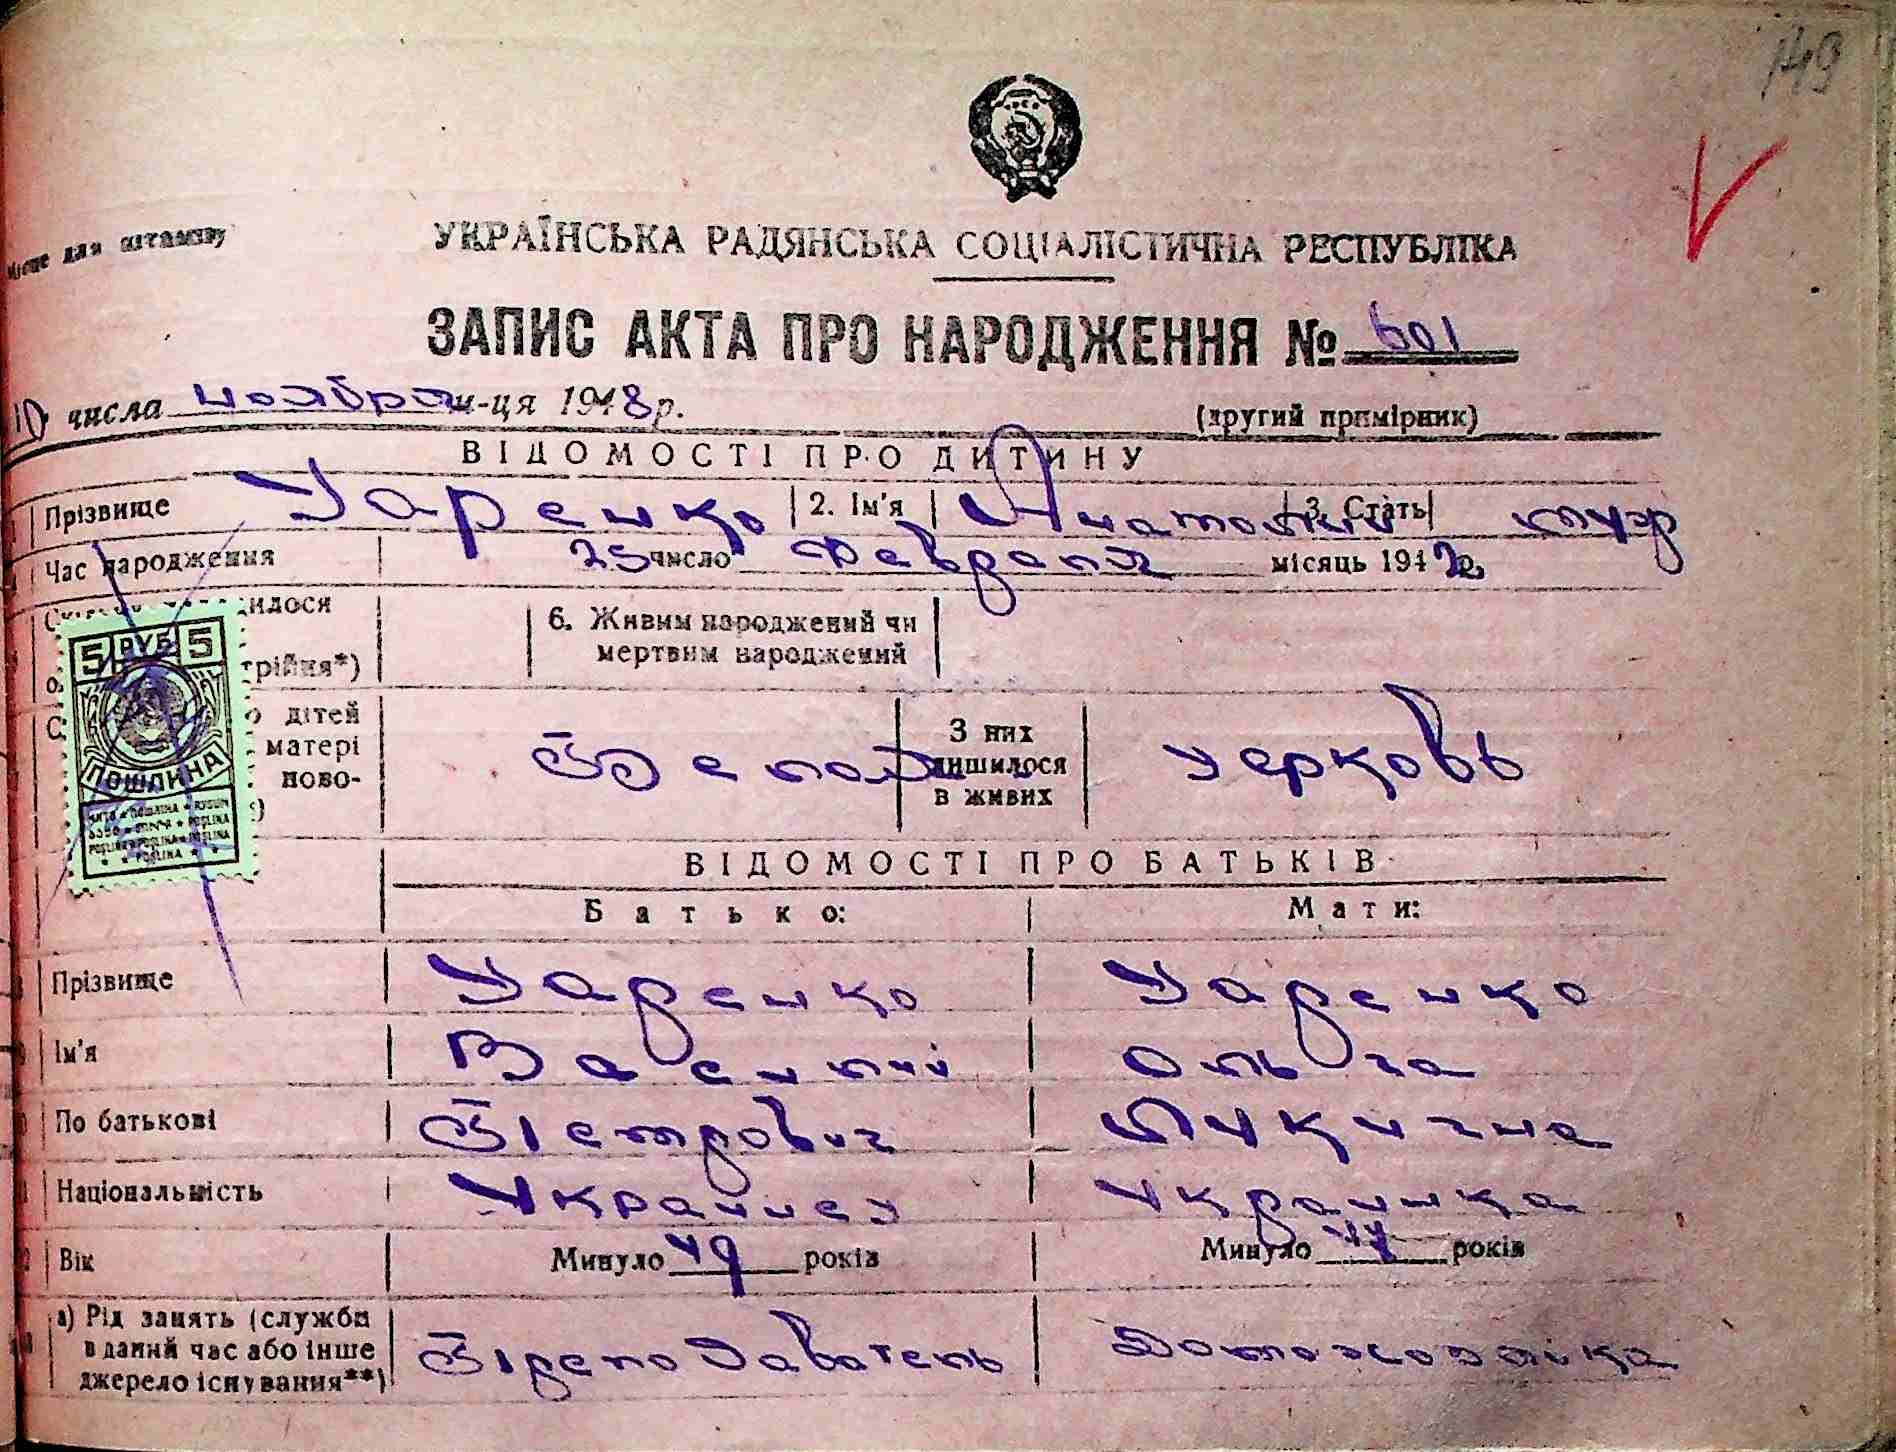 149
УКРАЇНСЬКА РАДЯНСЬКА СОЦІАЛІСТИЧНА РЕСПУБЛІКА
Місце для штампу
ЗАПИС АКТА ПРО НАРОДЖЕННЯ № 601
10 числа ноября м-ця 1948 р.
(другий примірник)
ВІДОМОСТІ ПРО ДИТИНУ
Прізвище Царенко 2. Ім'я Анатолий 3. Стать муж
Час народження 25 число Февраля місяць 1942 р.
илося
6. Живим народжений чи
мертвим народжений
рійня*)
дітей
матері
ново-
З них
лишилося
в живих
церковь
5 РУБ 5
ПОШЛИНА
ВІДОМОСТІ ПРО БАТЬКІВ
Батько: Мати:
Прізвище Царенко Царенко
Ім'я Василий Ольга
По батькові Петрович Лукична
Національність Украинец Украинка
Вік Минуло 49 років Минуло 44 років
а) Рід занять (служба
в даний час або інше
джерело існування**)
Преподаватель Домохозяйка